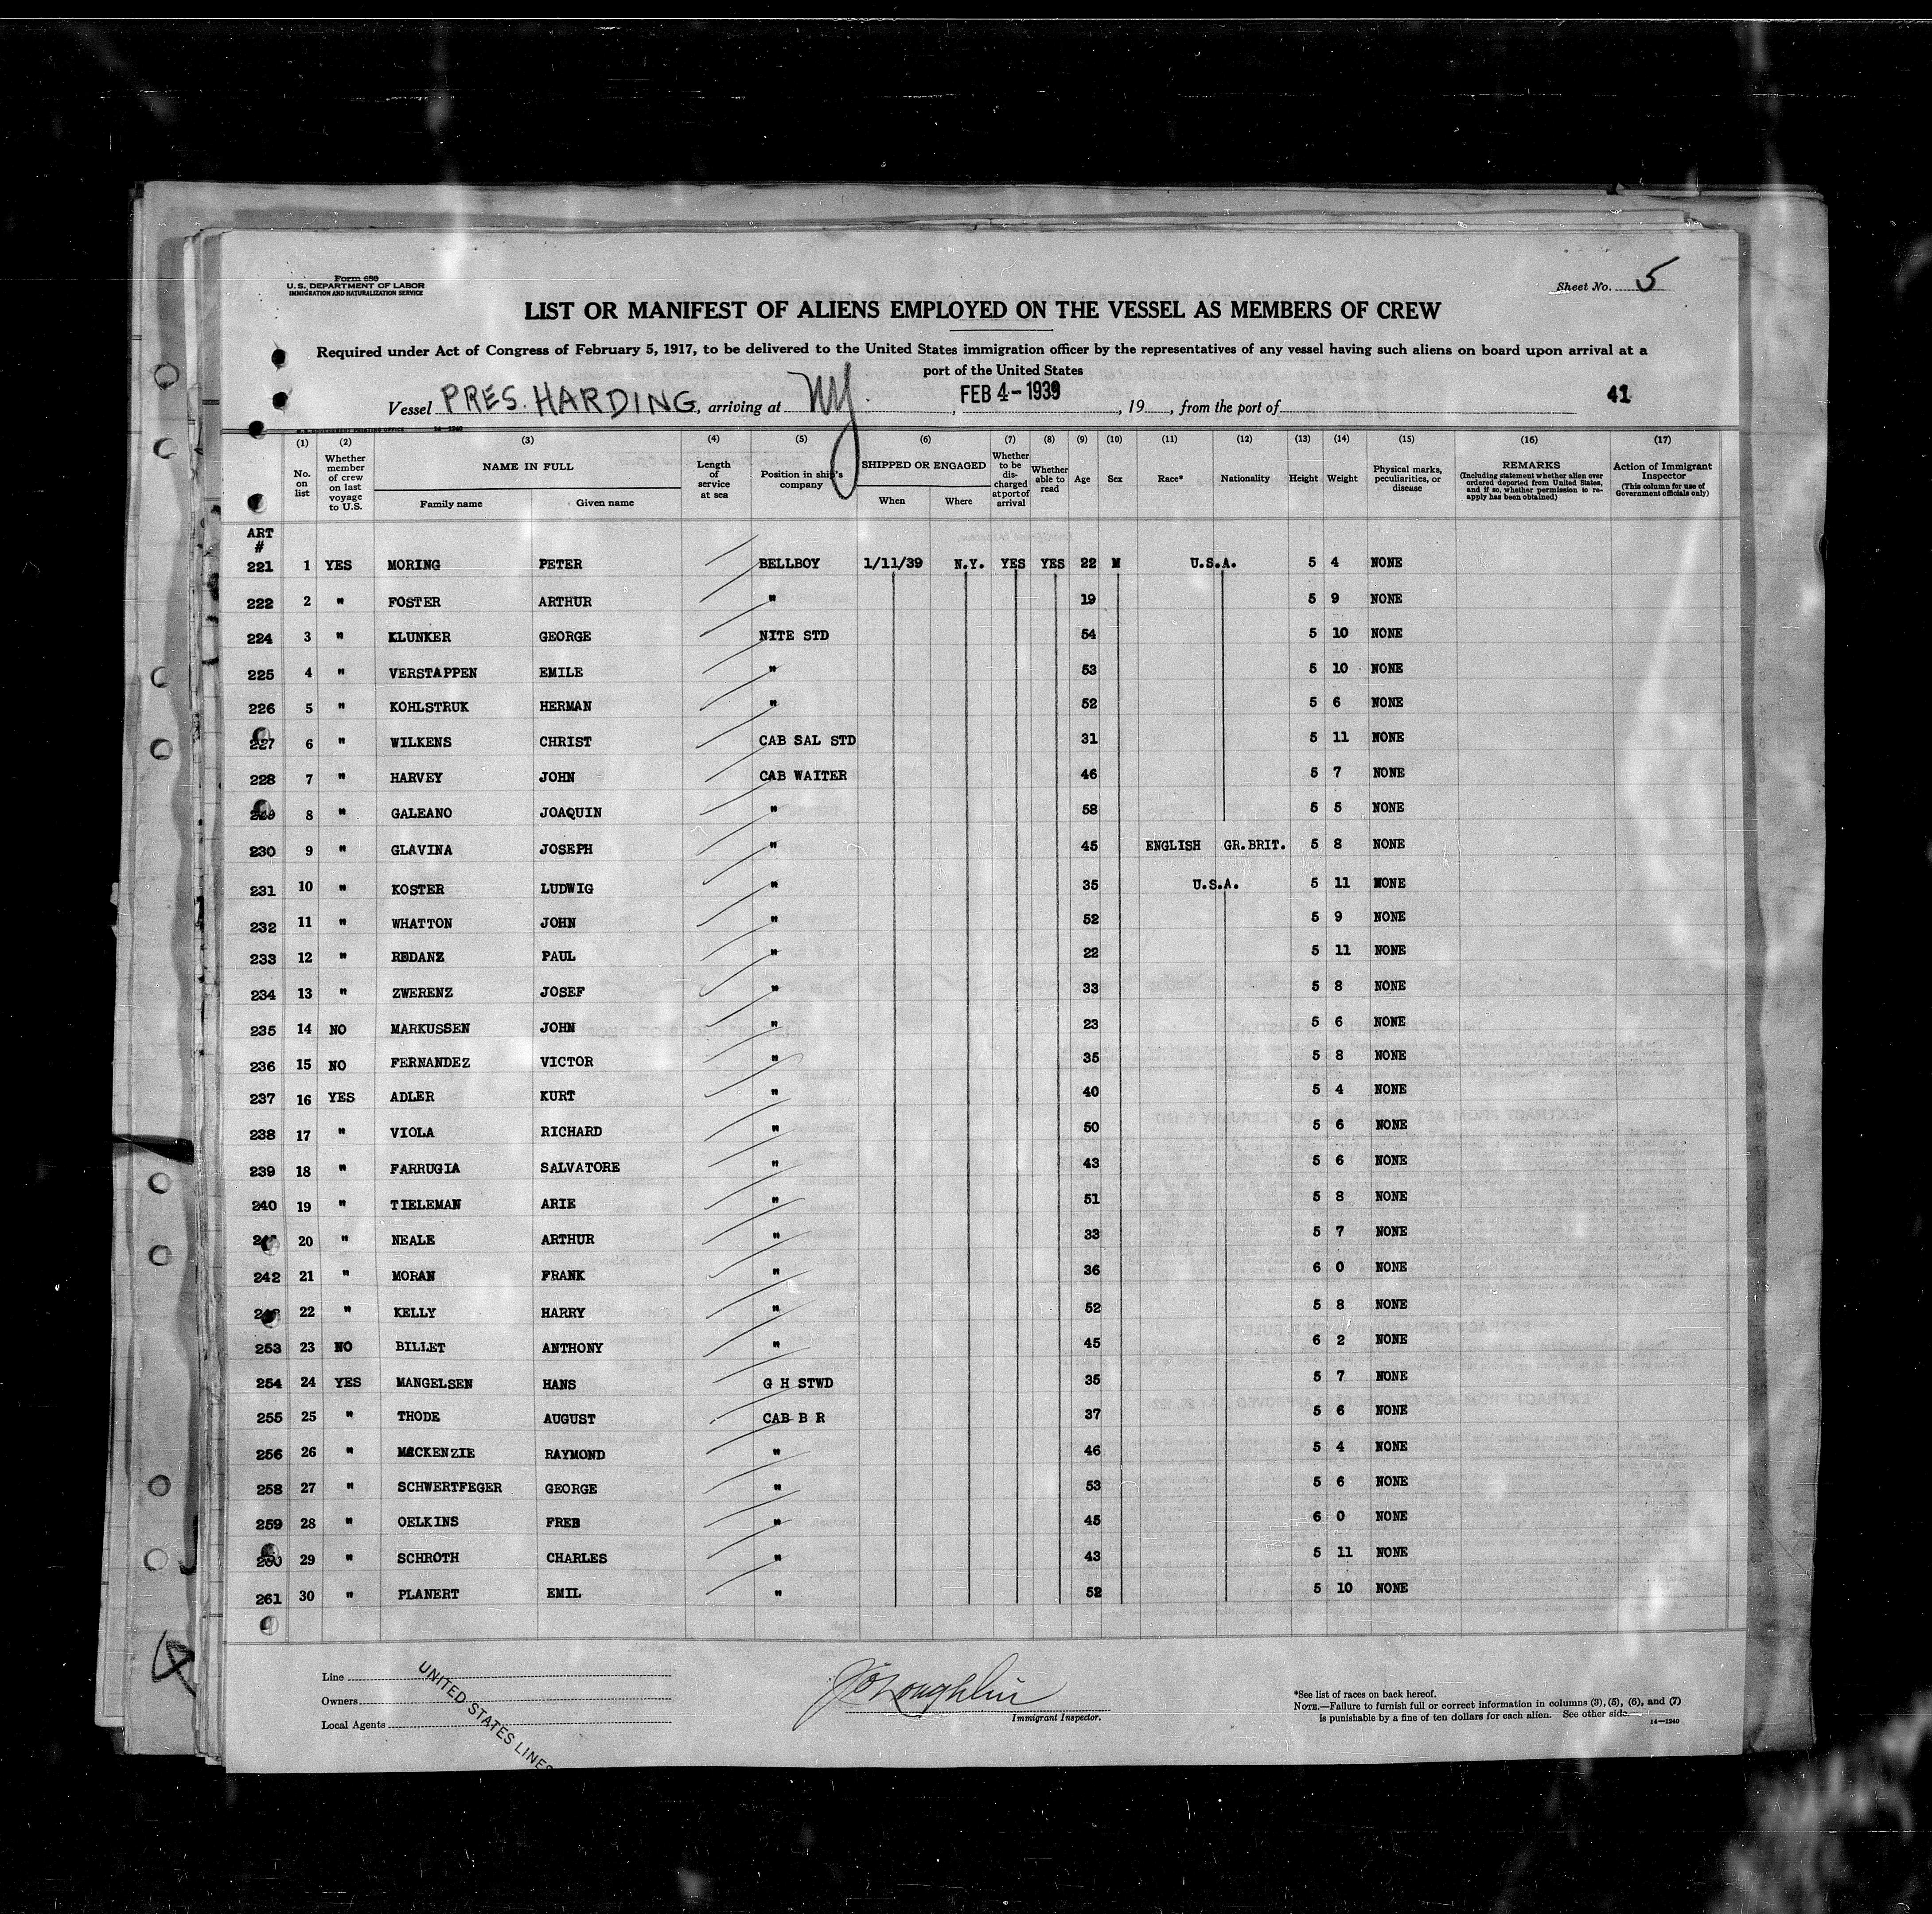 Form 680
U.S. DEPARTMENT OF LABOR
IMMIGRATION AND NATURALIZATION SERVICE
Sheet No. 5
LIST OR MANIFEST OF ALIENS EMPLOYED ON THE VESSEL AS MEMBERS OF CREW
Required under Act of Congress of February 5, 1917, to be delivered to the United States immigration officer by the representatives of any vessel having such aliens on board upon arrival at a
port of the United States
Vessel PRES. HARDING, arriving at NY., FEB 4-1939, 19 , from the port of 41
14-1240
(1) (2) (3) (4) (5) (6) (7) (8) (9) (10) (11) (12) (13) (14) (15) (16) (17)
No. on list
Whether member of crew on last voyage to U.S.
NAME IN FULL
Family name Given name
Length of service at sea
Position in ship's company
SHIPPED OR ENGAGED
When Where
Whether to be discharged at port of arrival
Whether able to read
Age Sex Race* Nationality Height Weight
Physical marks, peculiarities, or disease
REMARKS
(Including statement whether alien ever ordered deported from United States, and if so, whether permission to re-apply has been obtained)
Action of Immigrant Inspector
(This column for use of Government officials only)
ART
#
221 1 YES MORING PETER BELLBOY 1/11/39 N.Y. YES YES 22 M U.S.A. 5 4 NONE
222 2 " FOSTER ARTHUR " 19 5 9 NONE
224 3 " KLUNKER GEORGE NITE STD 54 5 10 NONE
225 4 " VERSTAPPEN EMILE " 53 5 10 NONE
226 5 " KOHLSTRUK HERMAN " 52 5 6 NONE
227 6 " WILKENS CHRIST CAB SAL STD 31 5 11 NONE
228 7 " HARVEY JOHN CAB WAITER 46 5 7 NONE
8 " GALEANO JOAQUIN " 58 5 5 NONE
230 9 " GLAVINA JOSEPH " 45 ENGLISH GR.BRIT. 5 8 NONE
231 10 " KOSTER LUDWIG " 35 U.S.A. 5 11 NONE
232 11 " WHATTON JOHN " 52 5 9 NONE
233 12 " REDANZ PAUL " 22 5 11 NONE
234 13 " ZWERENZ JOSEF " 33 5 8 NONE
235 14 NO MARKUSSEN JOHN " 23 5 6 NONE
236 15 NO FERNANDEZ VICTOR " 35 5 8 NONE
237 16 YES ADLER KURT " 40 5 4 NONE
238 17 " VIOLA RICHARD " 50 5 6 NONE
239 18 " FARRUGIA SALVATORE " 43 5 6 NONE
240 19 " TIELEMAN ARIE " 51 5 8 NONE
20 " NEALE ARTHUR " 33 5 7 NONE
242 21 " MORAN FRANK " 36 6 0 NONE
22 " KELLY HARRY " 52 5 8 NONE
253 23 NO BILLET ANTHONY " 45 6 2 NONE
254 24 YES MANGELSEN HANS G H STWD 35 5 7 NONE
255 25 " THODE AUGUST CAB B R 37 5 6 NONE
256 26 " MACKENZIE RAYMOND " 46 5 4 NONE
258 27 " SCHWERTFEGER GEORGE " 53 5 6 NONE
259 28 " OELKINS FRED " 45 6 0 NONE
260 29 " SCHROTH CHARLES " 43 5 11 NONE
261 30 " PLANERT EMIL " 52 5 10 NONE
Line
Owners
Local Agents
UNITED STATES LINES
J O'Loughlin
Immigrant Inspector.
*See list of races on back hereof.
NOTE.—Failure to furnish full or correct information in columns (3), (5), (6), and (7)
is punishable by a fine of ten dollars for each alien. See other side.
14-1240